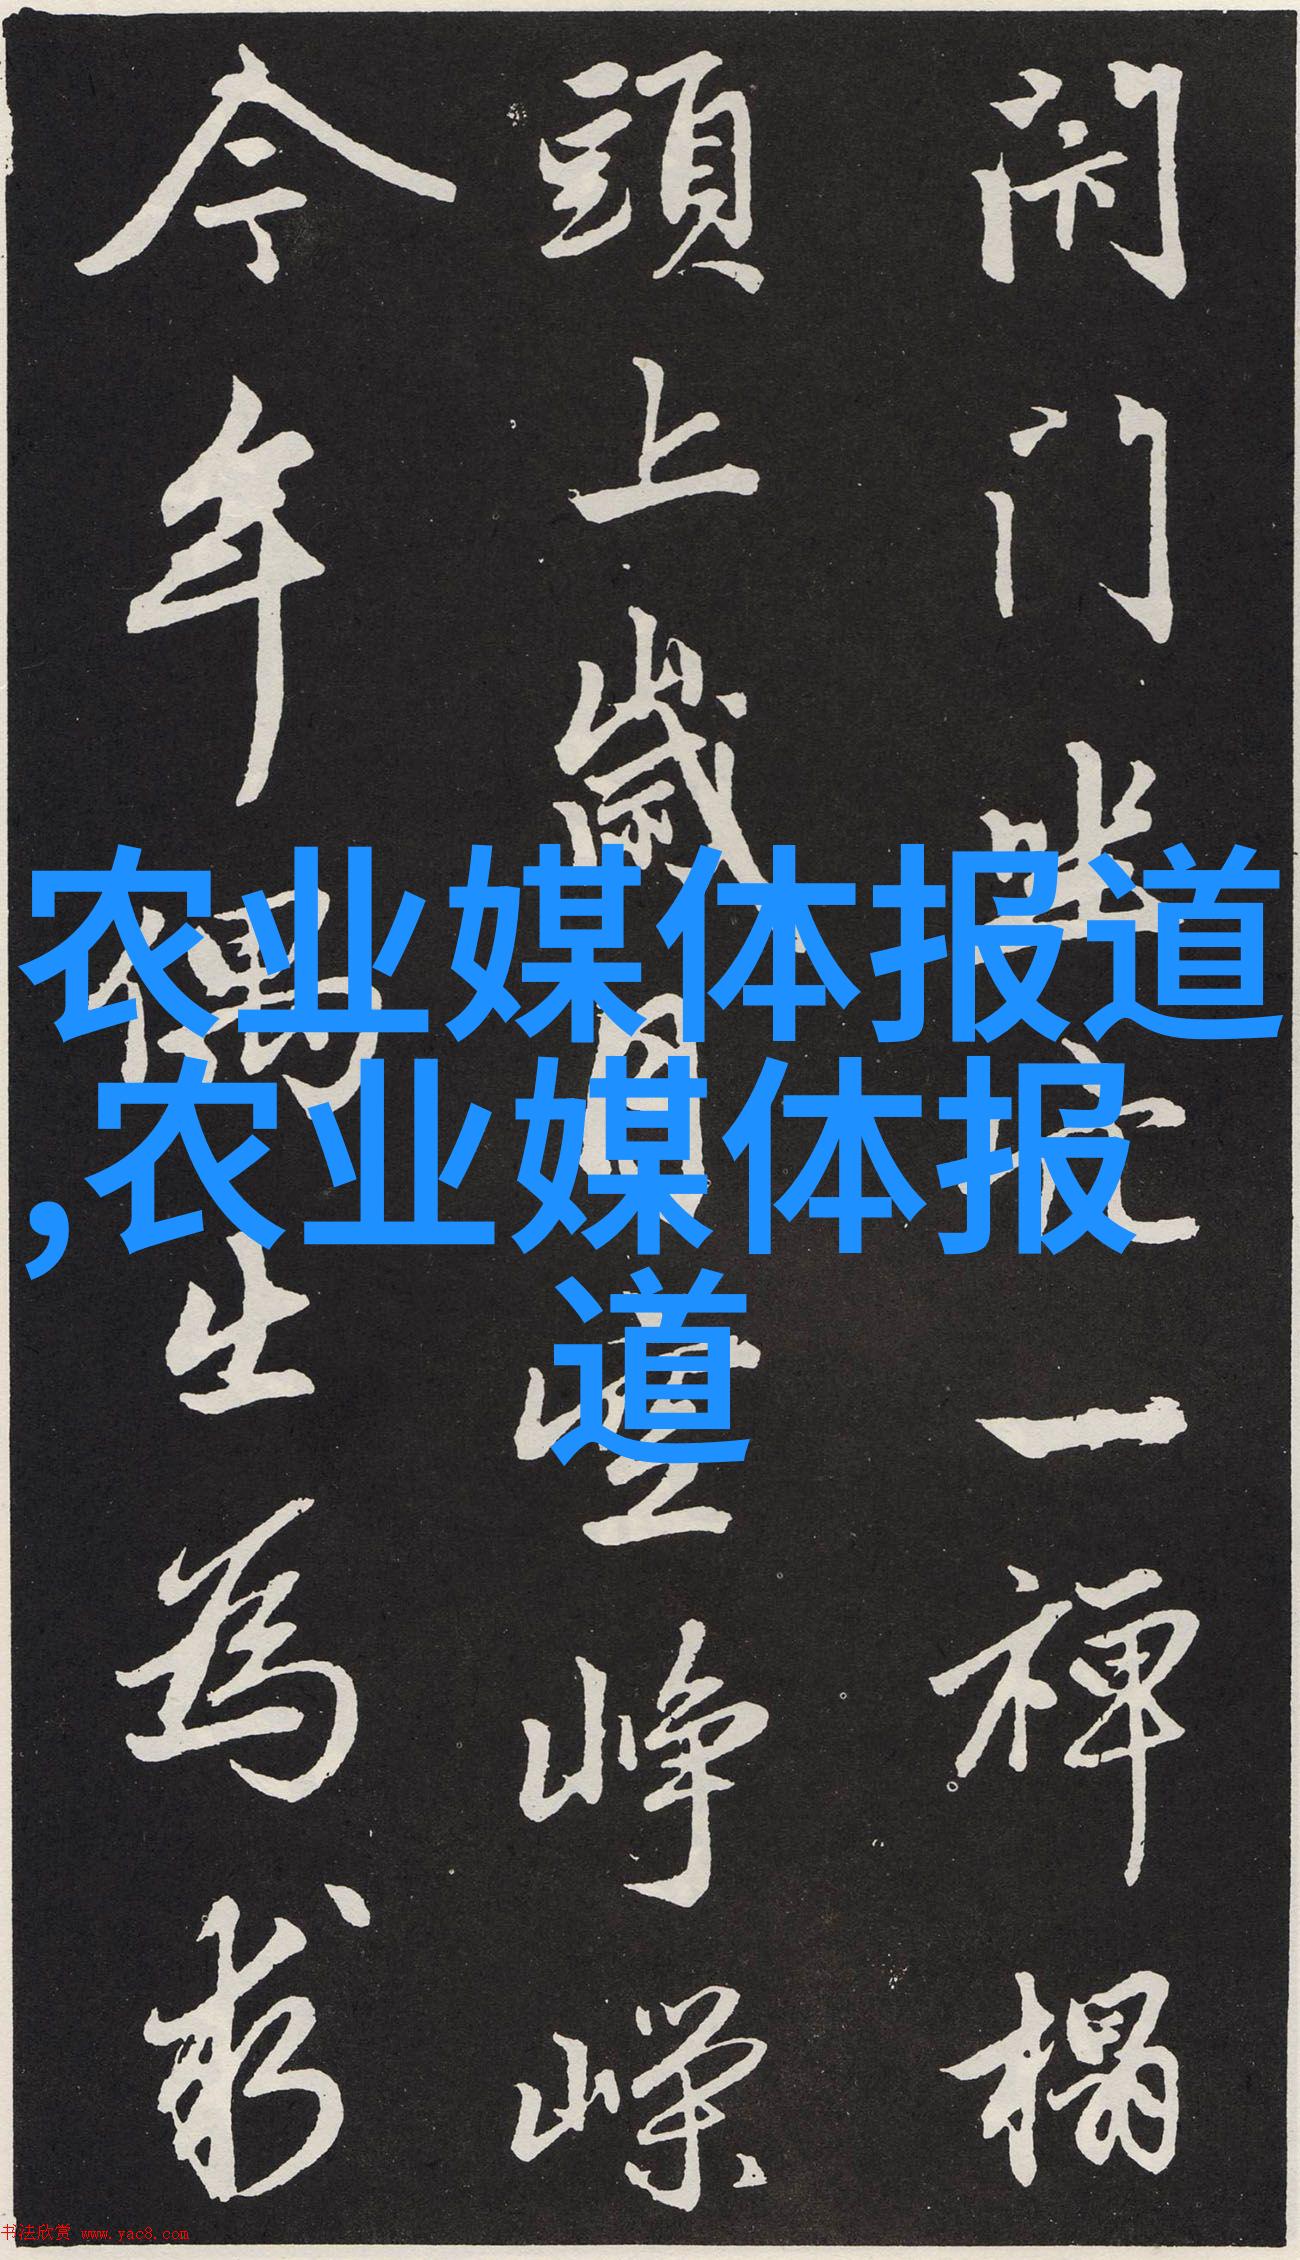 閉門坐穴一禪榻
頭上歲月空崢嶸
今年偶出為求
农业媒体报道
,农业媒体报
道
书法欣赏 www.yac8.com